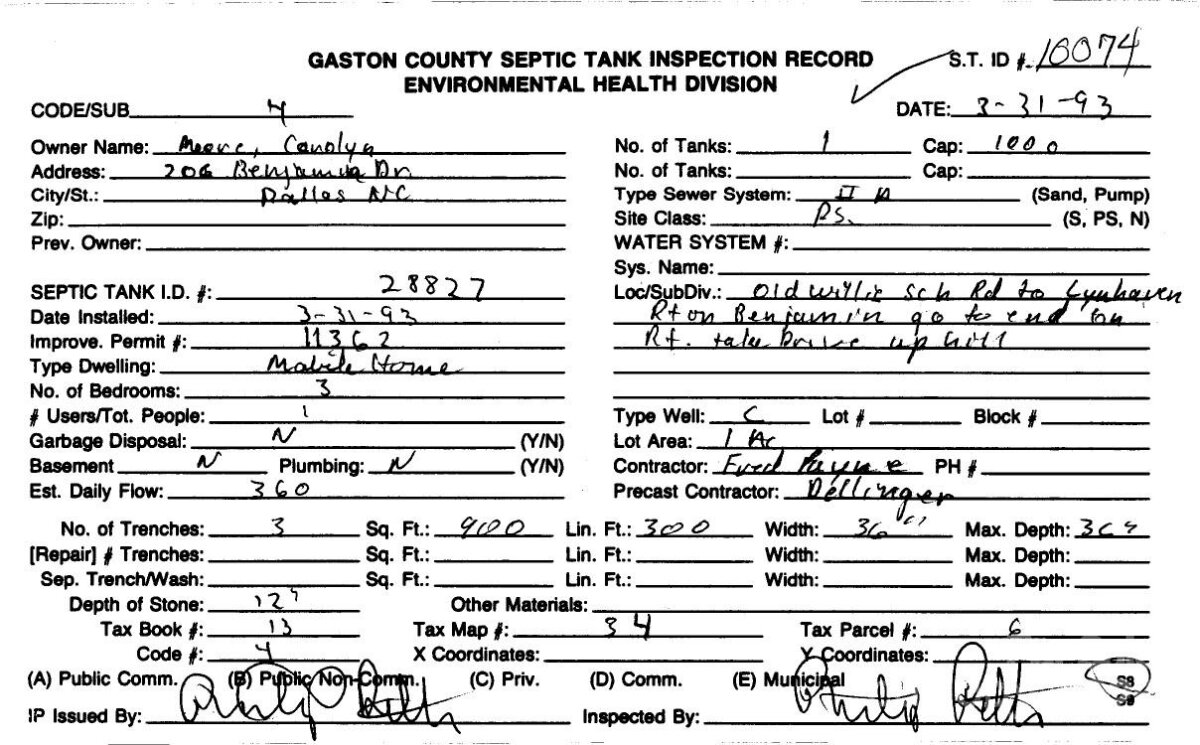 GASTON COUNTY SEPTIC TANK INSPECTION RECORD S.T. ID #. 10074
ENVIRONMENTAL HEALTH DIVISION
CODE/SUB 4 DATE: 3-31-93
Owner Name: Moore, Carolyn No. of Tanks: 1 Cap: 1000
Address: 206 Benjamin Dr No. of Tanks: Cap:
City/St.: Dallas NC Type Sewer System: II A (Sand, Pump)
Zip: Site Class: PS. (S, PS, N)
Prev. Owner: WATER SYSTEM #:
Sys. Name:
SEPTIC TANK I.D. #: 28827 Loc/SubDiv.: Old Wyllie Sch Rd to Lynhaven
Date Installed: 3-31-93 Rt on Benjamin go to end on
Improve. Permit #: 11362 Rt. take Drive up hill
Type Dwelling: Mobile Home
No. of Bedrooms: 3
# Users/Tot. People: 1 Type Well: C Lot # Block #
Garbage Disposal: N (Y/N) Lot Area: 1 Ac
Basement N Plumbing: N (Y/N) Contractor: Fred Payne PH #
Est. Daily Flow: 360 Precast Contractor: Dellinger
No. of Trenches: 3 Sq. Ft.: 900 Lin. Ft.: 300 Width: 36" Max. Depth: 36"
[Repair] # Trenches: Sq. Ft.: Lin. Ft.: Width: Max. Depth:
Sep. Trench/Wash: Sq. Ft.: Lin. Ft.: Width: Max. Depth:
Depth of Stone: 12" Other Materials:
Tax Book #: 13 Tax Map #: 34 Tax Parcel #: 6
Code #: 4 X Coordinates: Y Coordinates:
(A) Public Comm. (B) Public Non-Comm. (C) Priv. (D) Comm. (E) Municipal
IP Issued By: Philip Inspected By: Philip